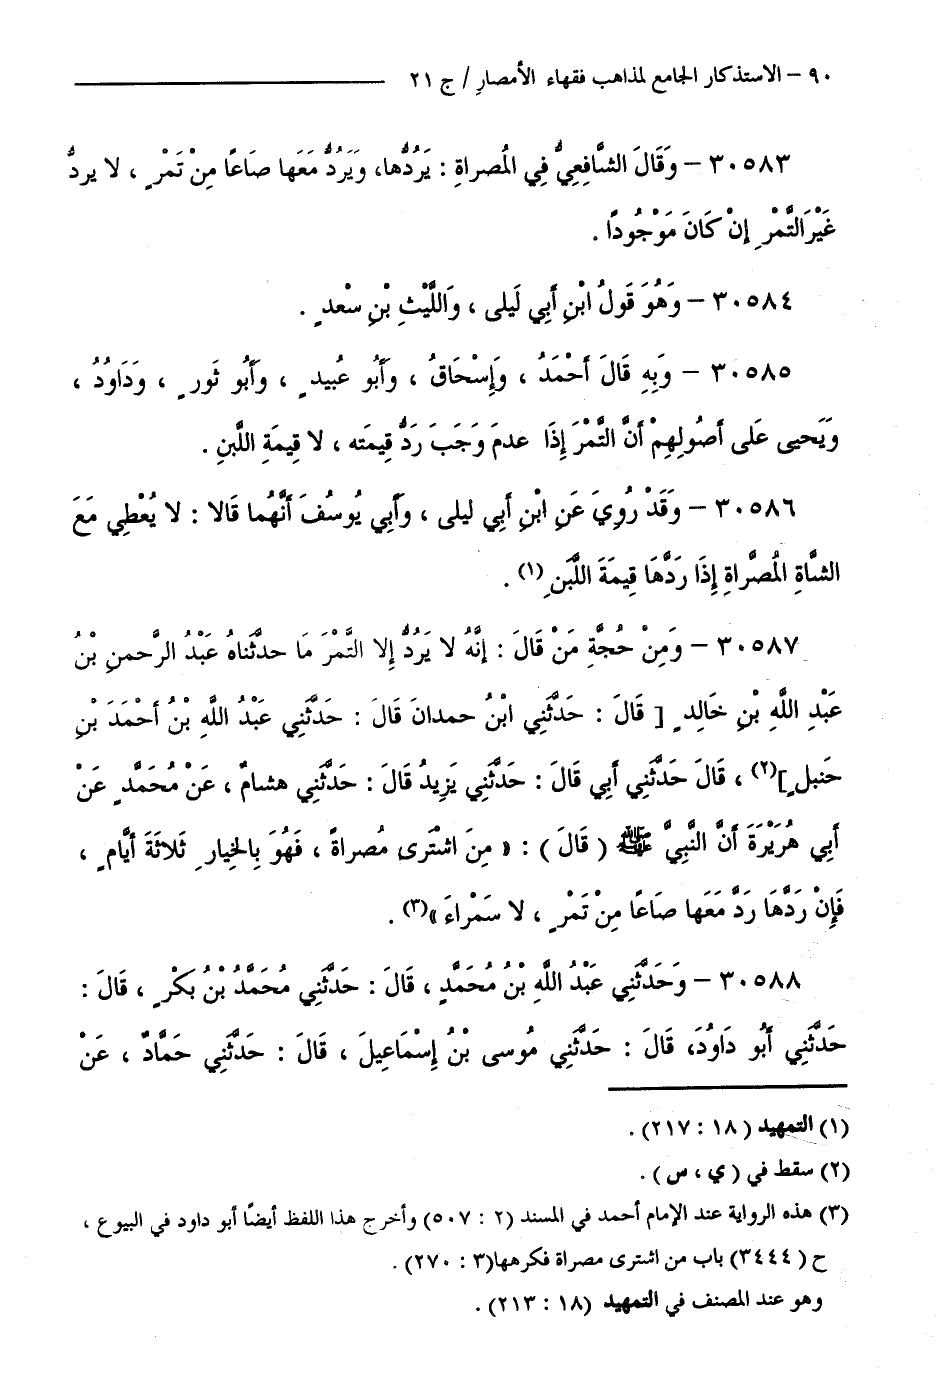 ٩٠ – الاستذكار الجامع لمذاهب فقهاء الأمصار / ج ٢١
٣٠٥٨٣ – وَقَالَ الشَّافِعِيُّ فِي الْمُصراةِ : يَرُدُّها، وَيَرُدُّ مَعَها صَاعًا مِنْ تَمْرٍ ، لا يردُّ
غَيْرَ التَّمْرِ إِنْ كَانَ مَوْجُودًا .
٣٠٥٨٤ – وَهُوَ قَولُ ابْنِ أَبِي لَيلى ، وَاللَّيْثِ بْنِ سعْدٍ .
٣٠٥٨٥ – وَبِهِ قَالَ أَحْمَدُ ، وَإِسْحَاقُ ، وَأَبُو عُبيدٍ ، وَأَبُو ثَورٍ ، وَدَاوُدُ ،
وَيَحيى عَلى أصُولِهِمْ أَنَّ التَّمْرَ إِذَا عدمَ وَجَبَ رَدُّ قِيمَته ، لا قِيمَةِ اللَّبنِ .
٣٠٥٨٦ – وَقَدْ رُوِيَ عَنِ ابْنِ أَبِي ليلى ، وَأَبِي يُوسُفَ أَنَّهُما قَالا : لا يُعْطِي مَعَ
الشَّاةِ المُصَّراةِ إِذَا رَدَّهَا قِيمَةَ اللَّبَنِ (١) .
٣٠٥٨٧ – وَمِنْ حُجَّةِ مَنْ قَالَ : إِنَّهُ لا يَرُدُّ إِلا التَّمْرَ مَا حدثَّناهُ عَبْدُ الرَّحمنِ بْنُ
عَبْدِ اللَّهِ بْنِ خَالِدٍ [ قَالَ : حَدَّثَنِي ابْنُ حمدانَ قَالَ : حَدَّثَنِي عَبْدُ اللَّهِ بْنُ أَحْمَدَ بْنِ
حَنبلٍ ](٢) ، قَالَ حَدَّثَنِي أَبِي قَالَ : حَدَّثَنِي يَزِيدُ قَالَ : حَدَّثَنِي هشامٌ ، عَنْ مُحَمَّدٍ عَنْ
أَبِي هُرَيْرَةَ أَنَّ النَّبِيَّ ﷺ ( قَالَ ) : « مِنَ اشْتَرى مُصراةً ، فَهُوَ بِالخِيارِ ثَلاثَةَ أيَّامٍ ،
فَإِنْ رَدَّهَا رَدَّ مَعَها صَاعًا مِنْ تَمْرٍ ، لا سَمْراءَ »(٣) .
٣٠٥٨٨ – وَحَدَّثَنِي عَبْدُ اللَّهِ بْنُ مُحَمَّدٍ ، قَالَ : حَدَّثَنِي مُحَمَّدُ بْنُ بَكْرٍ ، قَالَ :
حَدَّثَنِي أَبُو دَاوُدَ، قَالَ : حَدَّثَنِي مُوسى بْنُ إِسْمَاعِيلَ ، قَالَ : حَدَّثَنِي حَمَّادٌ ، عَنْ
(١) التمهيد (١٨ : ٢١٧) .
(٢) سقط في ( ي ، س ) .
(٣) هذه الرواية عند الإمام أحمد في المسند (٢ : ٥٠٧) وأخرج هذا اللفظ أيضًا أبو داود في البيوع ،
ح (٣٤٤٤) باب من اشترى مصراة فكرهها(٣ : ٢٧٠) .
وهو عند المصنف في التمهيد (١٨ : ٢١٣) .